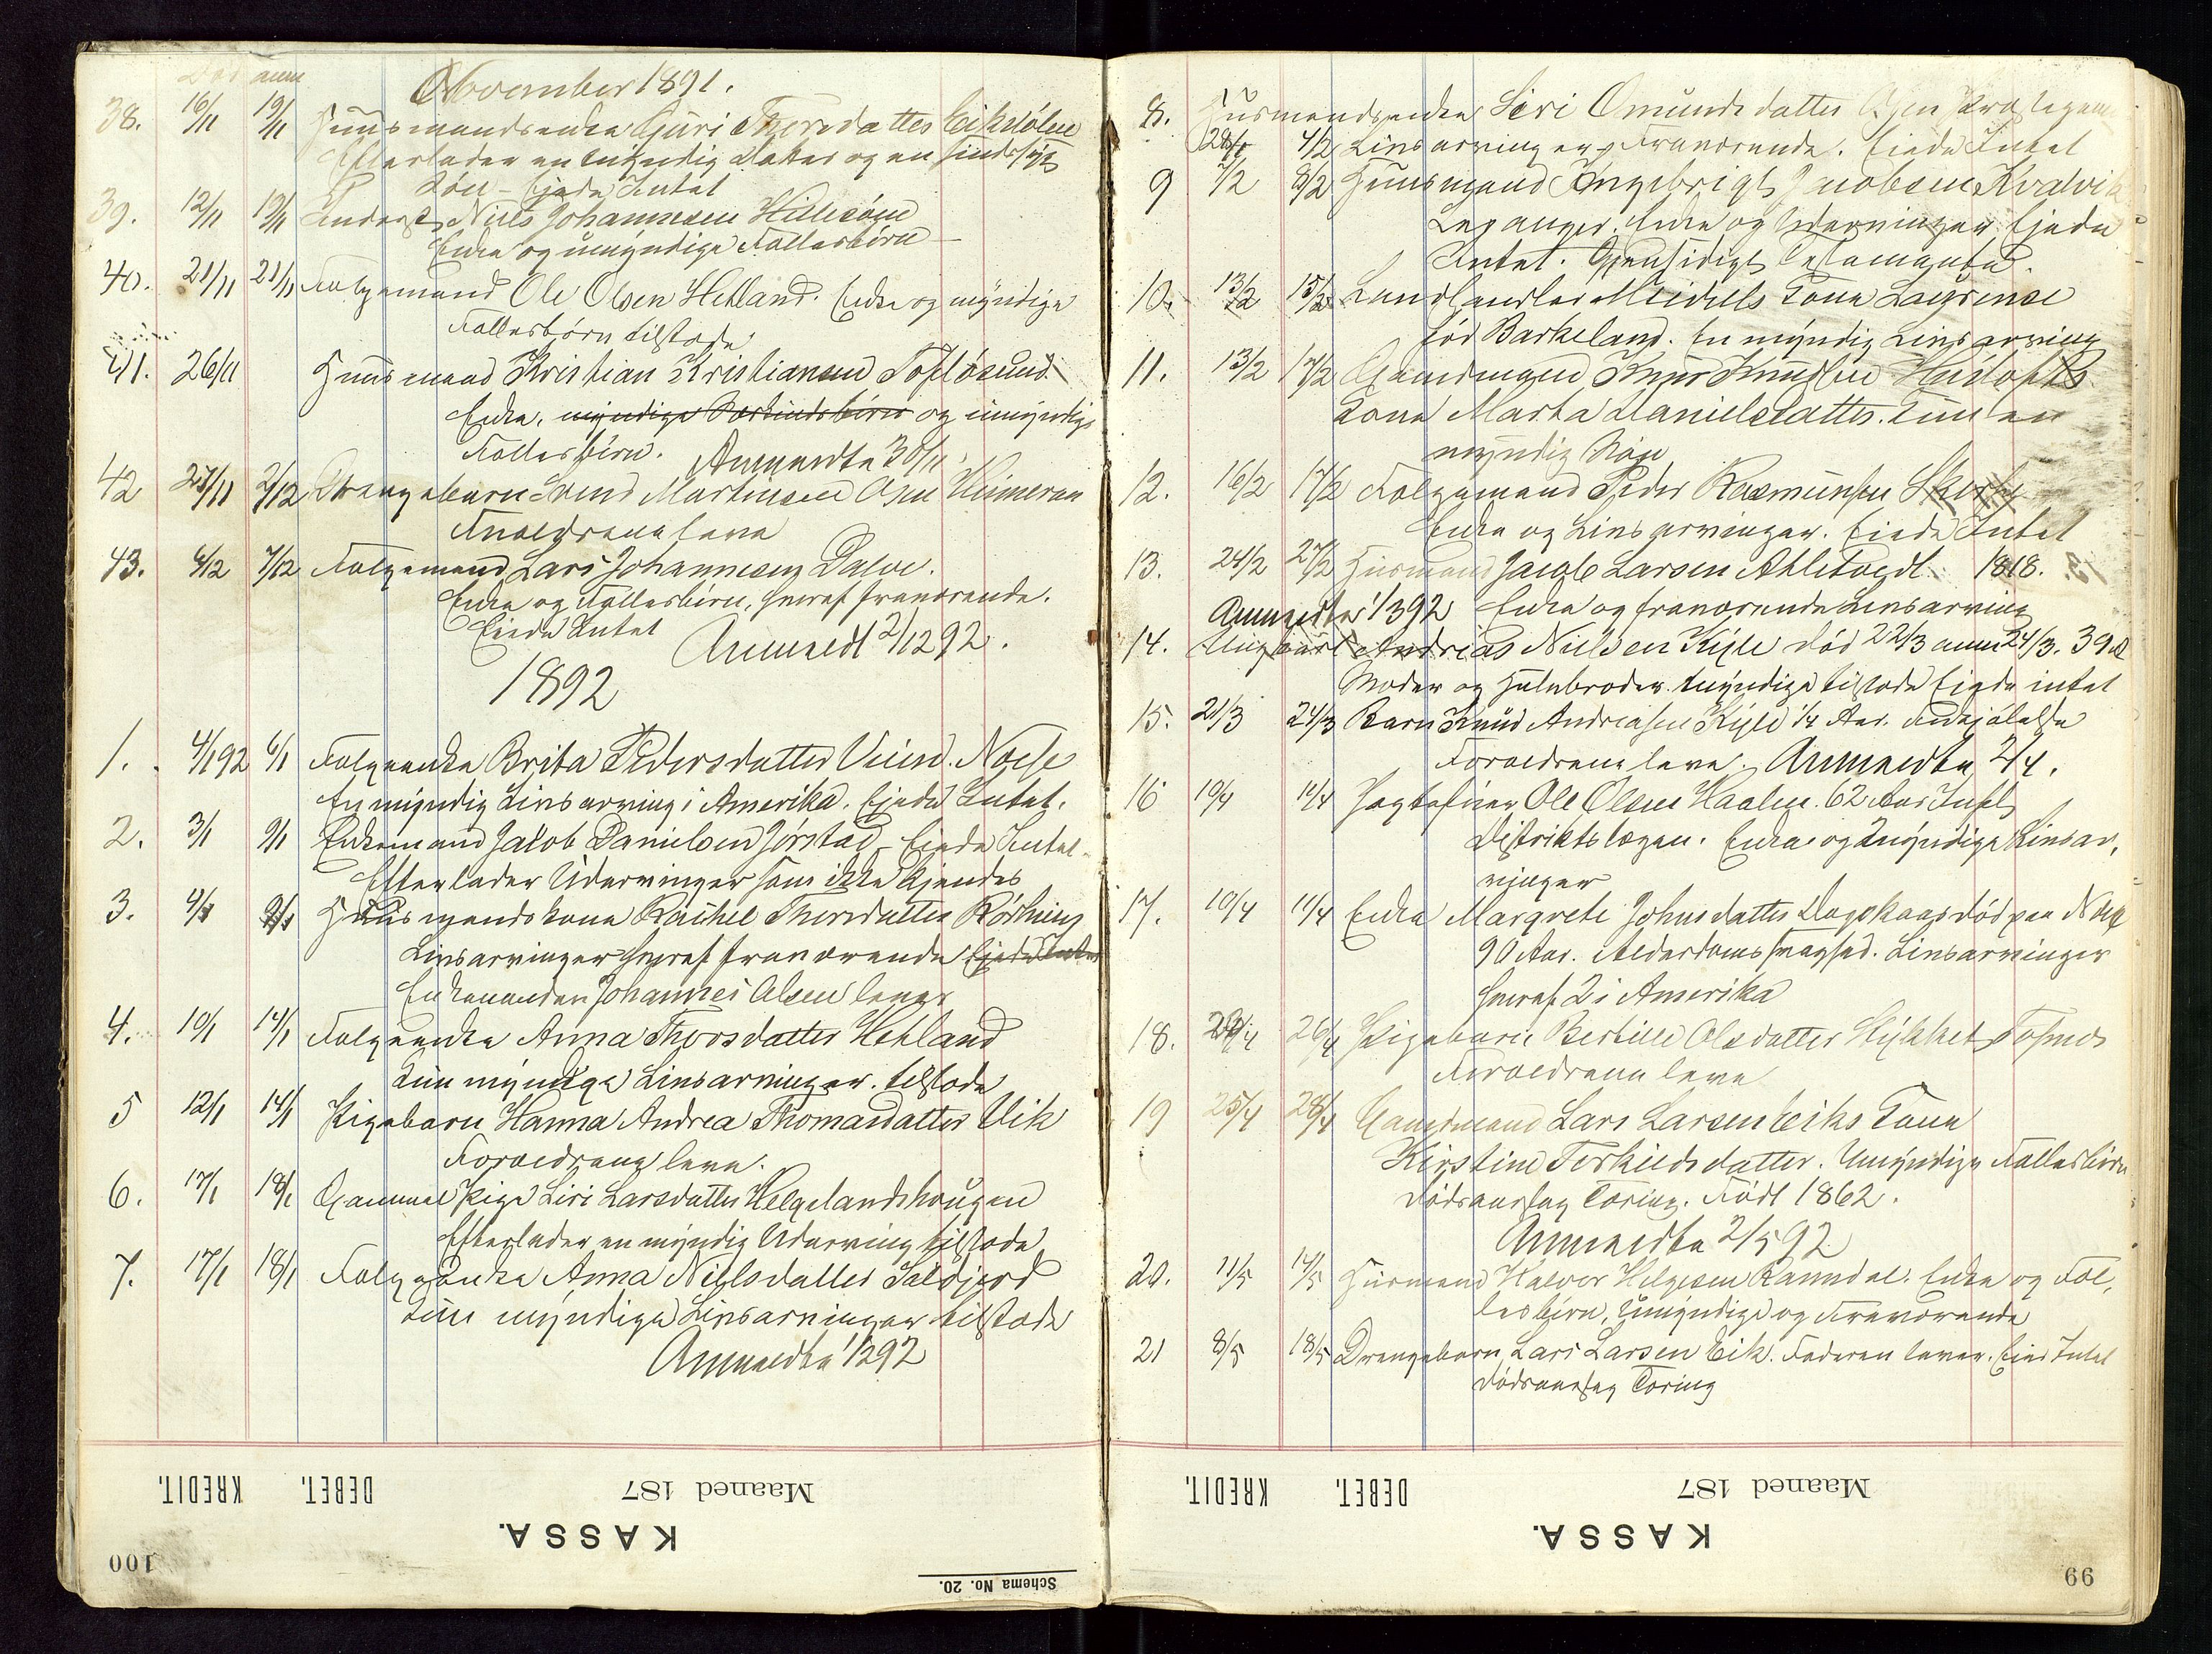 Død anm
November 1891.
38. 16/11 19/11 Huusmandsenke Guri Thorsdatter Eikeslien
Efterlader en umyndig Datter og en sindssyg
Søn - Ejede Intet
39. 12/11 19/11 Inderst Niels Johannesen Hillesøen
Enke og umyndige Fællesbørn
40. 21/11 21/11 Folgemand Ole Olsen Hetland. Enke og myndige
Fællesbørn tilstede
41. 26/11 Huusmand Kristian Kristiansen Toftøsund
Enke, myndige Særkuldsbørn og umyndige
Fællesbørn. Anmeldte 30/11
42 27/11 2/12 Drengebarn Svend Martinsen Aasen Himeraa
Forældrene leve
43. 6/12 7/12 Folgemand Lars Johannesen Dalve.
Enke og Fællesbørn, hvoraf fraværende.
Eiede Intet Anmeldt 2/1292.
1892
1. 4/192 6/1 Folgeenke Brita Pedersdatter Viein. Næse
En myndig Livsarving i Amerika. Ejede Intet.
2. 3/1 9/1 Enkemand Jakob Danielsen Jørstad - Eiede Intet
Efterlader Udarvinger som ikke kjendes
3. 4/1 9/1 Huusmandskone Rachel Thorsdatter Røskeng
Livsarvinger hvoraf fraværende Ejede Intet
Enkemanden Johannes Olsen lever
4. 10/1 14/1 Folgeenke Anna Thorsdatter Hetland
Kun myndige Livsarvinger. tilstede
5 12/1 14/1 Pigebarn Hanna Andrea Thomasdatter Vik
Forældrene leve.
6. 17/1 18/1 Gammel Pige Siri Larsdatter Helgelandshougen
Efterlader en myndig Udarving tilstede
7. 17/1 18/1 Folgeenke Anna Nielsdatter Saltfjord
Kun myndige Livsarvinger tilstede
Anmeldte 1/292
KREDIT. DEBET. Maaned 187
KASSA.
100
Schema No. 20.
8. Husmandsenke Siri Omundsdatter Aasen
28/1 4/2 Livsarvinger Fraværende. Eiede Intet
9 7/2 8/2 Huusmand Ingebrigt Jacobsen Kvalvik
Leganger. Enke og Udarvinger Ejede
Intet. Gjensidigt Testamente.
10. 13/2 15/2 Landhandler Meidells Kone Laurense
fød Barkeland. En myndig Livsarving
11. 13/2 17/2 Gaardmand Knud Knudsen
Kone Marta Danielsdatter. Kun en
myndig Søn
12. 16/2 17/2 Folgemand Peder Rasmunsen
Enke og Livsarvinger. Eiede Intet
13. 24/2 27/2 Husmand Jacob Larsen Ahletvedt 1818.
Anmeldte 1/392 Enke og fraværende Livsarving
14. Ungkarl Andreas Nielsen Kyle død 22/3 anm 24/3. 39
Moder og Halvbroder. Myndige tilstede Eiede intet
15. 21/3 24/3 Barn Knud Andreasen Kyle 1/4 Aar.
Forældrene leve. Anmeldte 2/4.
16 10/4 11/4 Jagtefører Ole Olsen Haalen. 62 Aar Intet
Distriktslægen. Enke og Umyndige Livsar,
vinger
17. 10/4 11/4 Enke Margrete Johnsdatter Dagskaar død paa Næs
90 Aar. Alderdomssvaghed. Livsarvinger
hvoraf 2 i Amerika
18. 24/4 26/4 Pigebarn Bertille Olsdatter
Forældrene leve
19 25/4 28/4 Gaardmand Lars Larsen Eiks Kone
Kirstine Terkieldsdatter. Umyndige Fællesbørn
Dødsaarsag Tæring. Født 1862.
Anmeldte 2/592
20. 11/5 14/5 Husmand Halvor Helgesen Ramsdal. Enke og Fæl,
lesbørn, Umyndige og Fraværende
21 8/5 18/5 Drengebarn Lars Larsen Eik. Faderen lever. Eier Intet
Dødsaarsag Tæring
KREDIT. DEBET. Maaned 187
KASSA.
99